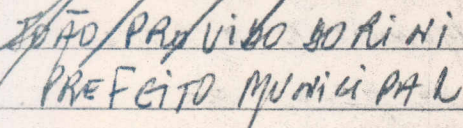 JOÃO PROVIDO DORINI
PREFEITO MUNICIPAL